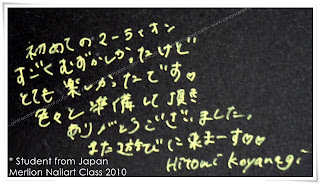 初めてのマーライオン
すごくむずかしかったけど
とても楽しかったです♡
色々と準備して頂き
ありがとうございました。
また遊びに来まーす♡♡
Hitomi Koyanagi
* Student from Japan
Merlion Nailart Class 2010